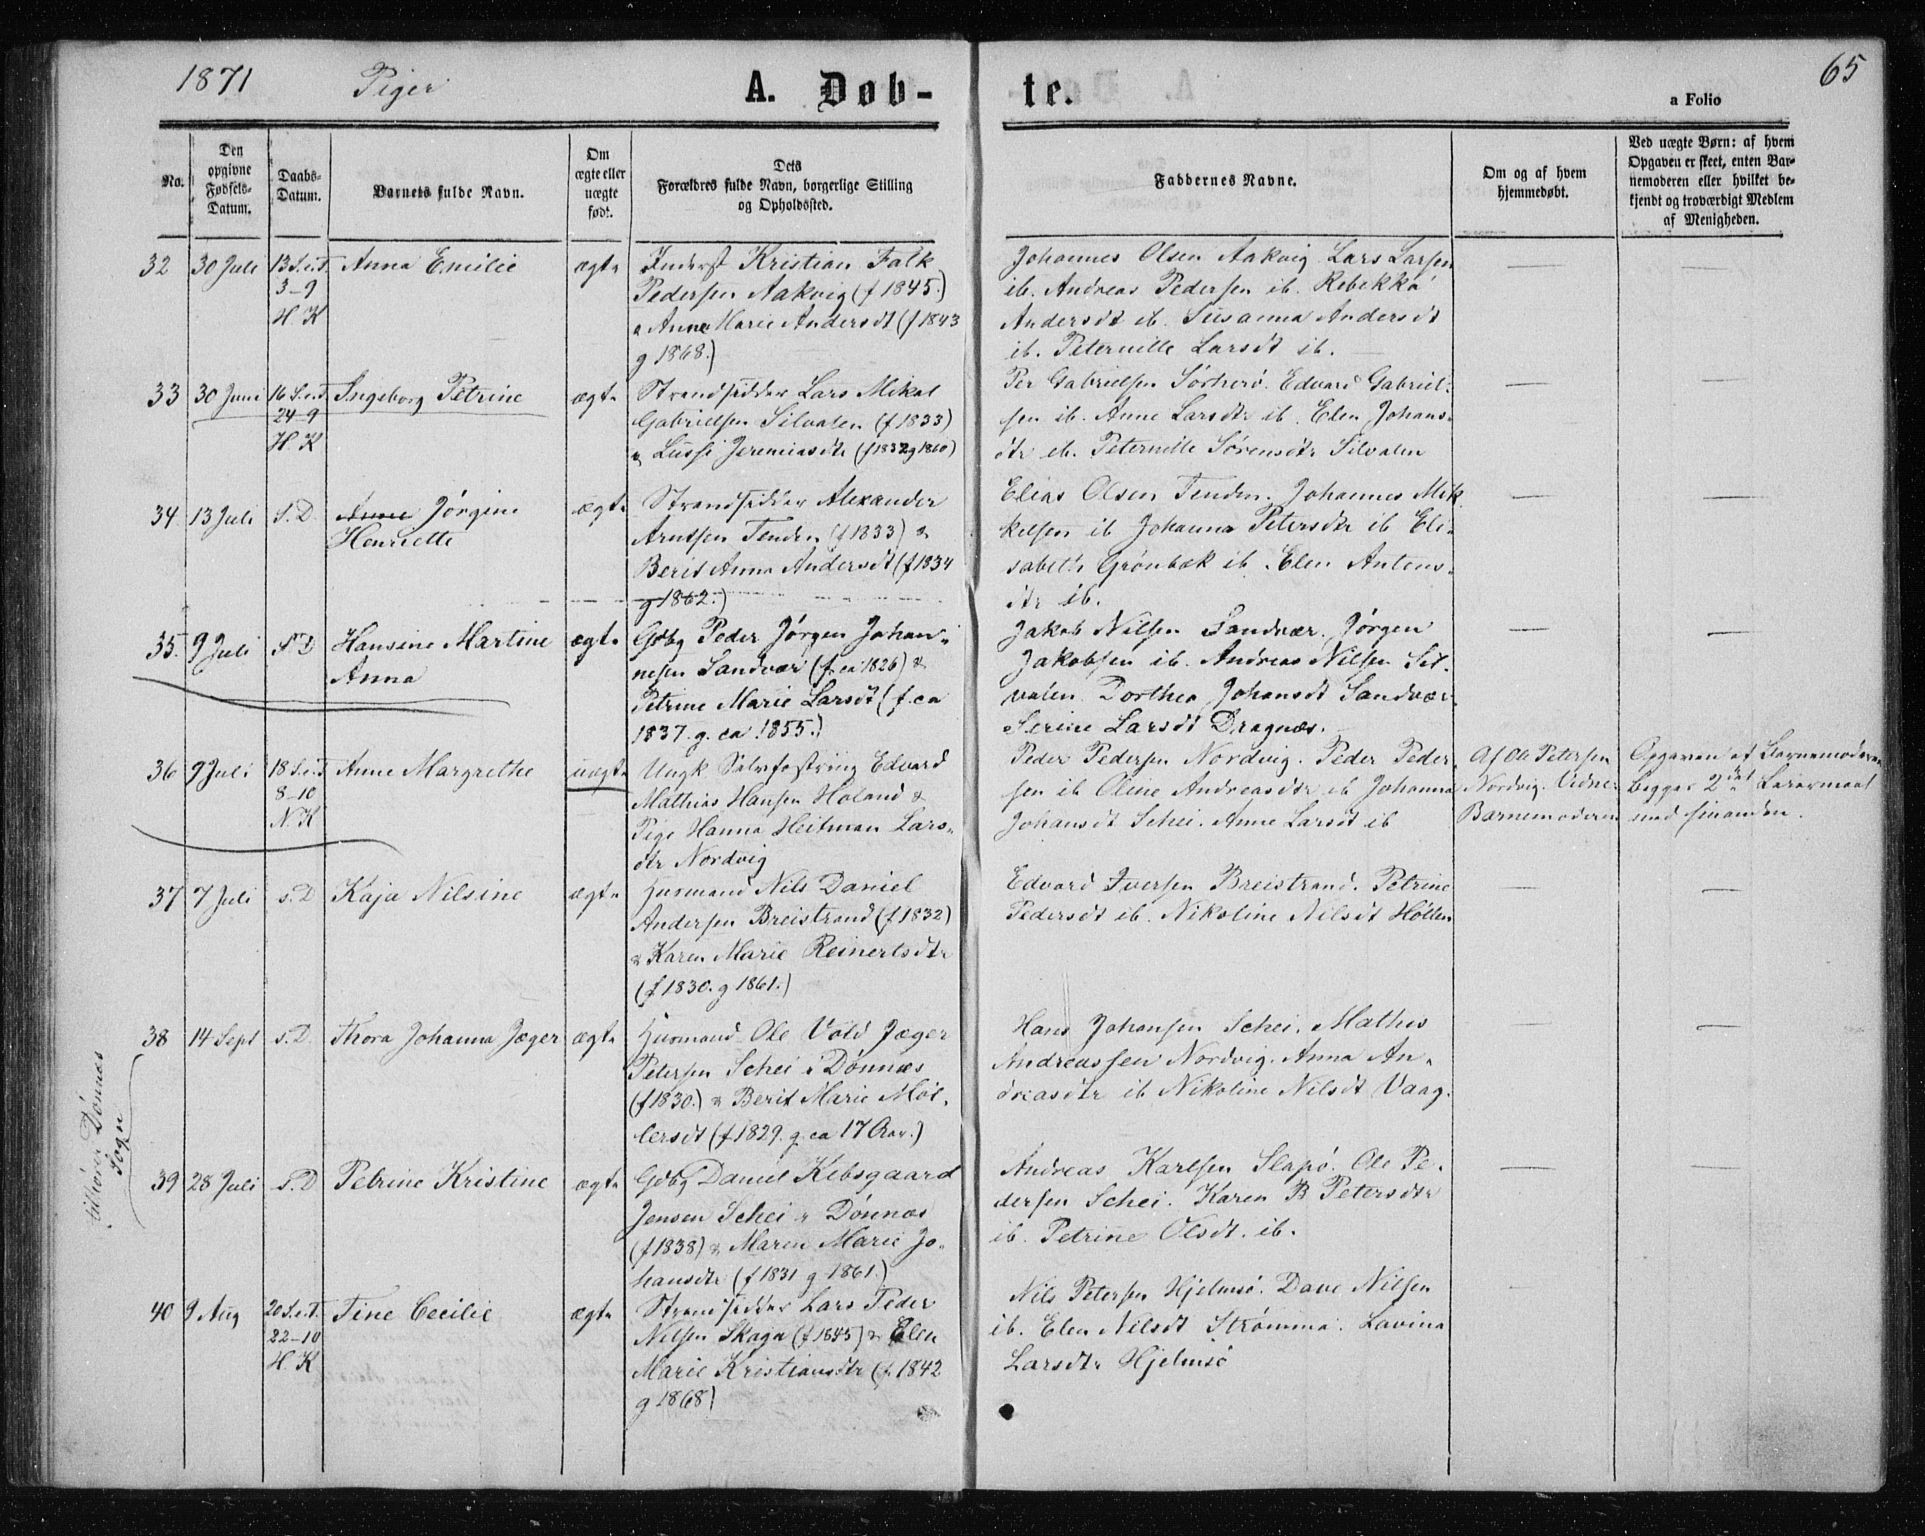 1871 Piger
A. Døb-
te.
a Folio
65
No.
Den opgivne Fødsels-Datum.
Daabs-Datum.
Barnets fulde Navn.
Om ægte eller uægte født.
Dets Forældres fulde Navn, borgerlige Stilling og Opholdssted.
Faddernes Navne.
Om og af hvem hjemmedøbt.
Ved uægte Børn: af hvem Opgaven er skeet, enten Barnemoderen eller hvilket bekjendt og troværdigt Medlem af Menigheden.
32 30 Juli 13 S.e.T. Anna Emilie ægte Inderst Kristian Falk
3-9 Pedersen Aakvig (f 1845.)
H K & Anne Marie Andersdt (f 1843
g 1868.)
Johannes Olsen Aakvig Lars Larsen
ib. Andreas Pedersen ib. Rebekka
Andersdt ib. Susanna Andersdt
ib. Peternille Larsdt ib.
33 30 Juni 16 S.e.T. Ingeborg Petrine ægte Strandsidder Lars Mikal
24-9 Gabrielsen Silvalen (f 1833)
H K & Lussi Jeremiasdtr (f 1832 g 1860)
Per Gabrielsen Sørherø. Edvard Gabriel-
sen ib. Anne Larsdtr ib. Elen Johans-
dtr ib. Peternille Sørensdtr Silvalen
34 13 Juli s. D. Anne Jørgine ægte Strandsidder Alexander
Henriette Arntsen Tenden (f 1833) &
Berit Anna Andersdt (f 1834
g 1862.)
Elias Olsen Tenden. Johannes Mik-
kelsen ib Johanna Petersdtr ib Eli-
sabeth Grønbæk ib. Elen Antons-
dtr ib.
35. 9 Juli s D Hansine Martine ægte Gdbg Peder Jørgen Johan-
Anna nesen Sandvær (f. ca 1826) &
Petrine Marie Larsdt (f. ca
1837. g. ca 1855.)
Jakob Nilsen Sandvær. Jørgen
Jakobsen ib. Andreas Nilsen Sil-
valen Dorthea Johansdt Sandvær.
Serine Larsdt Dragnæs.
36 9 Juli 18 S.e.T Anne Margrethe uægte Ungk Edvard
8-10 Mathias Hansen Høland &
N. K Pige Hanna Heitman Lars-
dtr Nordvig
Peder Pedersen Nordvig. Peder Peder-
sen ib Oline Andreasdtr ib Johanna
Johansdt Schei. Anne Larsdt ib
Af Ole Petersen
Nordvig. Vidne:
Barnemoderen
Opgaven af Barnemoderen
begges 2det Leiermaal
med hinanden.
37 7 Juli s. D Kaja Nilsine ægte Husmand Nils Daniel
Andersen Breistrand (f 1832)
& Karen Marie Reinertsdtr
(f 1830. g 1861.)
Edvard Iversen Breistrand. Petrine
Pedersdt ib. Nikoline Nilsdt Hølen
38 14 Sept s. D. Thora Johanna Jæger ægte Husmand Ole Vold Jæger
Petersen Schei i Dønnæs
(f 1830.) & Berit Marie Møl-
lersdt (f 1829. g. ca 17 Aar.)
Hans Johansen Schei. Mathis
Andreassen Nordvig. Anna An-
dreasdtr ib Nikoline Nilsdt Vaag.
tilhører Dønnæs
Sogn
39 28 Juli s. D Petrine Kristine ægte Gdbg Daniel Kebsgaard
Jensen Schei i Dønnæs
(f 1838) & Maren Marie Jo-
hansdtr (f 1831 g 1861.)
Andreas Karlsen Slapø. Ole Pe-
dersen Schei. Karen B Petersdtr
ib. Petrine Olsdt. ib.
40 9 Aug 20 S.e.T. Tine Cecilie ægte Strandsidder Lars Peder
22-10 Nilsen Skaga (f 1845) & Elen
H K Marie Kristiansdtr (f. 1842
g 1868)
Nils Petersen Hjelmsø. Dave Nilsen
ib. Elen Nilsdt Strømma. Lavina
Larsdtr Hjelmsø